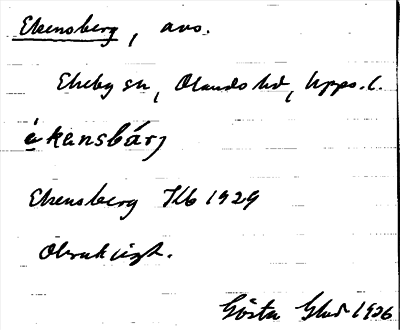 Ekensberg, avs.
Ekeby sn, Olands hd, Upps. l.
ékensbärj
Ekensberg Jkb 1929
Obrukligt.
Gösta 1936